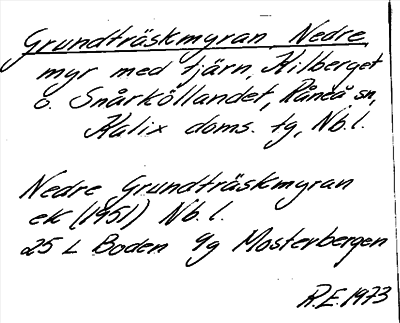 Grundträskmyran, Nedre
myr med tjärn, Hilberget
o. Snårköllandet, Råneå sn,
Kalix doms. tg, Nb. l.
Nedre Grundträskmyran
ek (1951) Nb. l.
25 L Boden 9g Mosterbergen
R.E. 1973